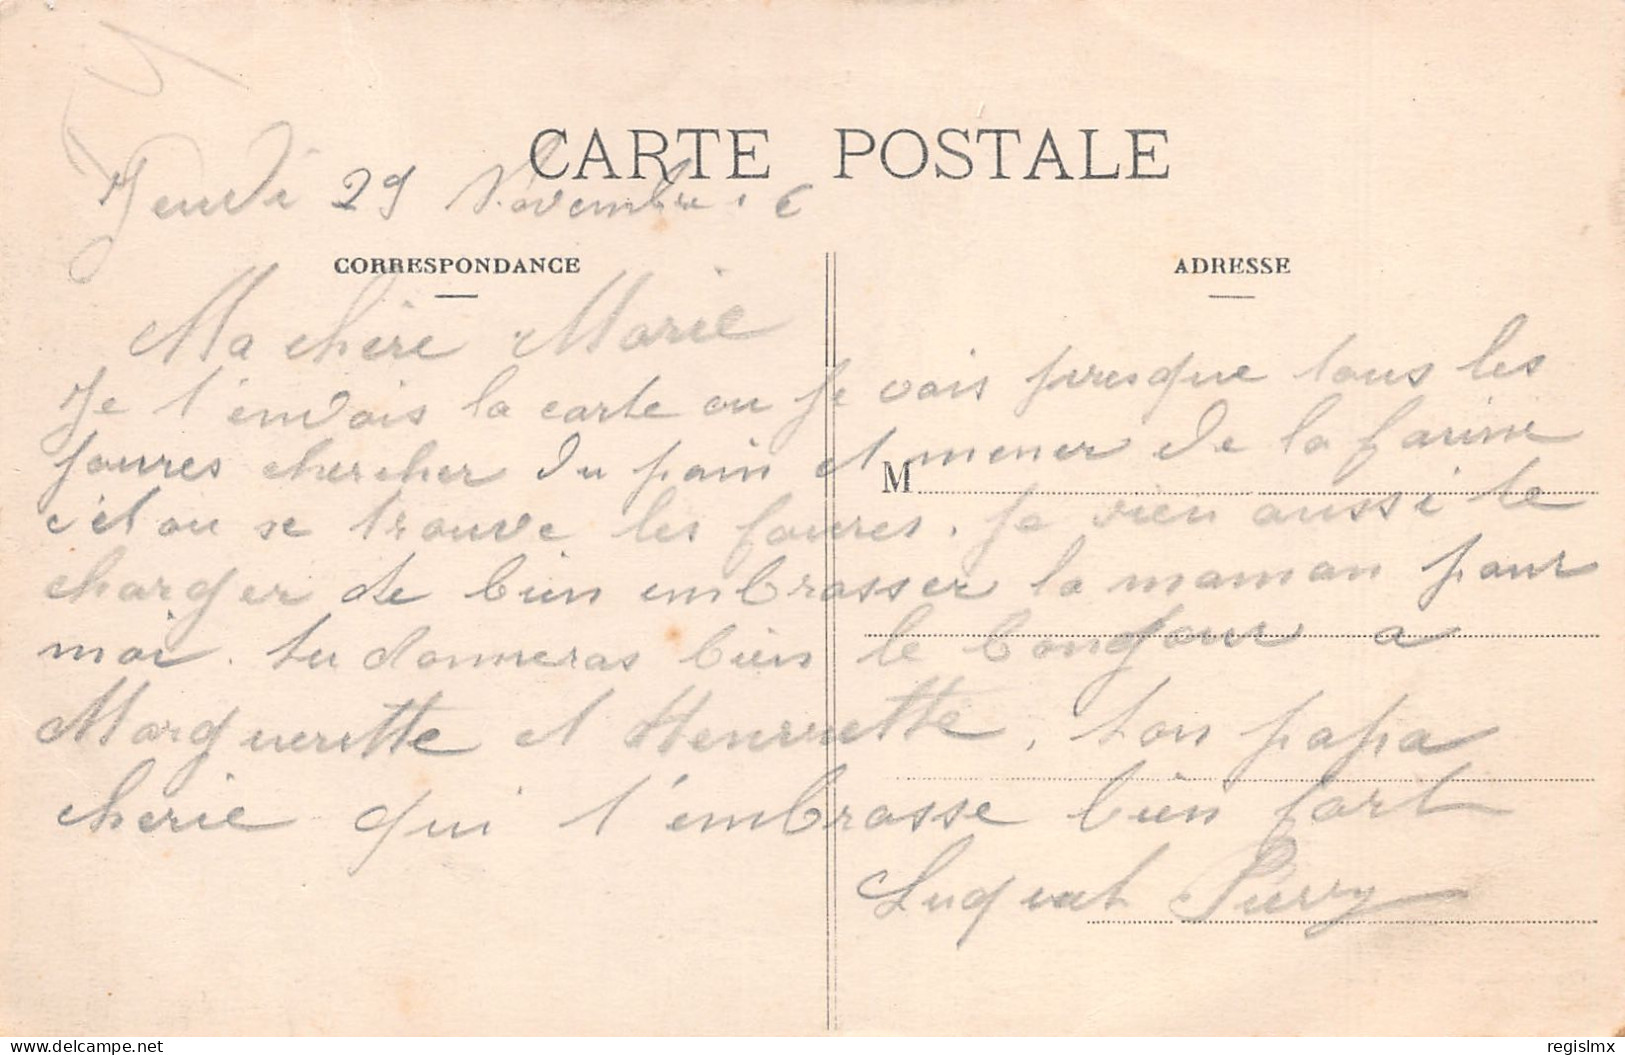 CARTE POSTALE
Jeudi 29 Novembre
CORRESPONDANCE
ADRESSE
Ma chère Marie
Je t'envois la carte ou je vais presque tous les
joures chercher du pain et mener de la farine
c'et ou se trouve les foures. Je vien aussi te
M
charger de bien embrasser la maman pour
moi. tu donneras bien le bongour a
Margueritte et Henriette, ton papa
cherie qui t'embrasse bien fort
delcampe.net
regislmx